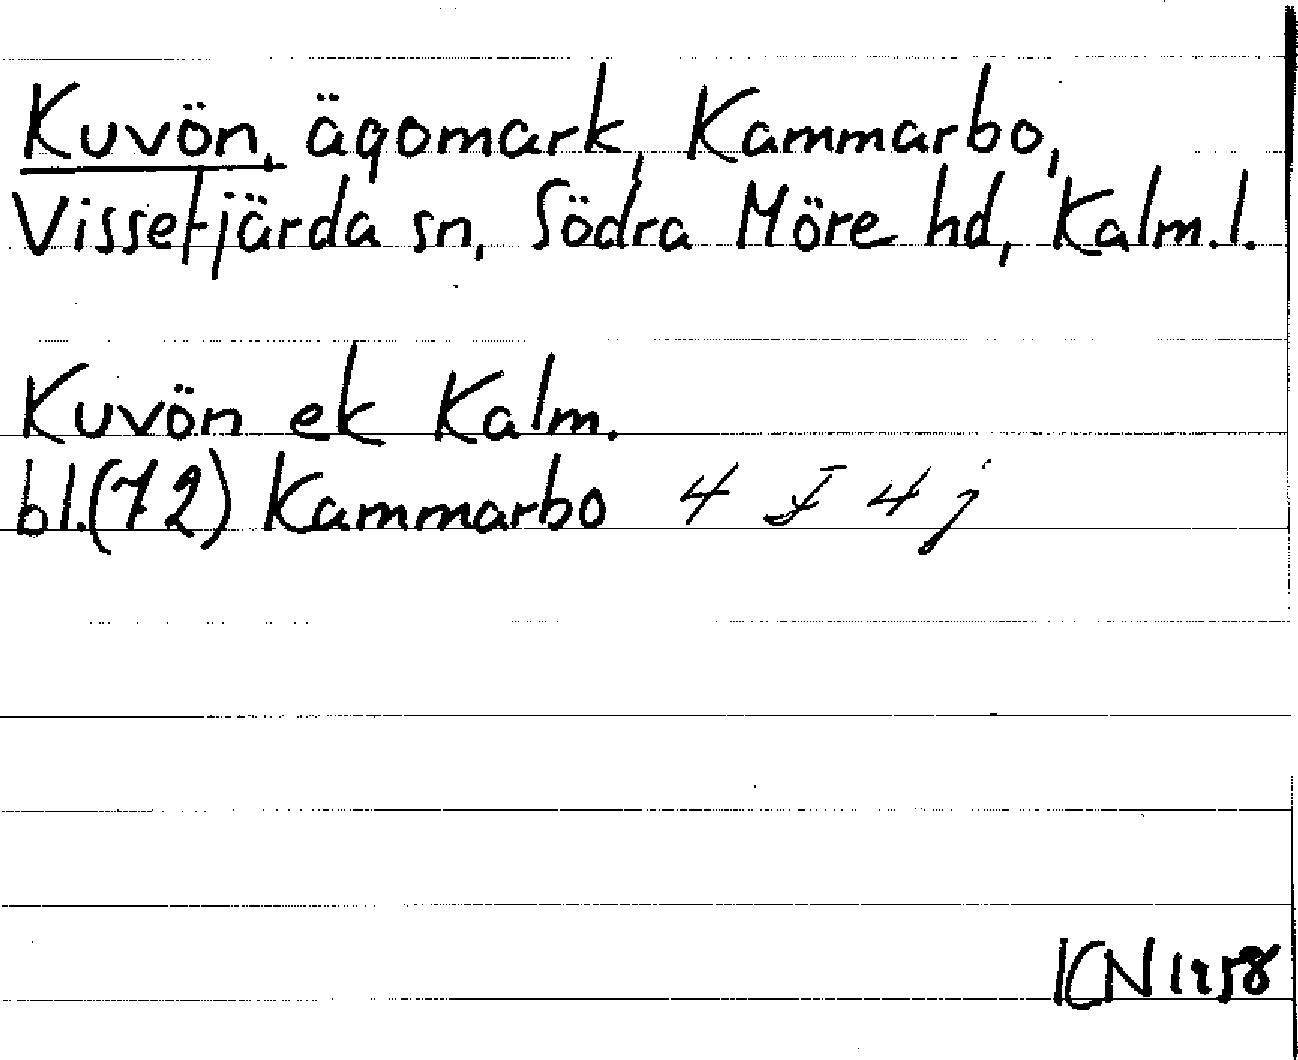 Kuvön, ägomark, Kammarbo,
Vissefjärda sn, Södra Möre hd, Kalm. l.
Kuvön ek Kalm.
bl. (72) Kammarbo 4 F 4 j
KN 1958